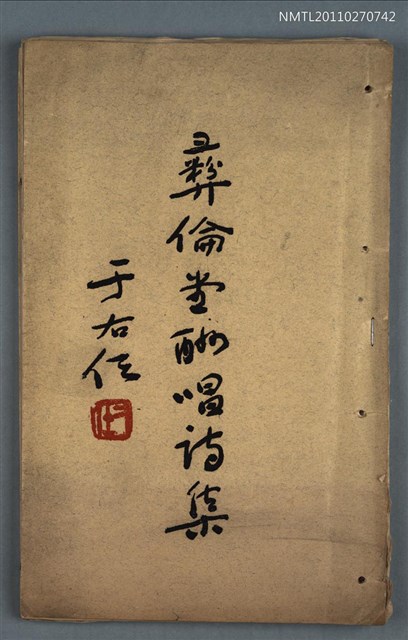 NMTL20110270742
彝倫堂酬唱詩集
于右任